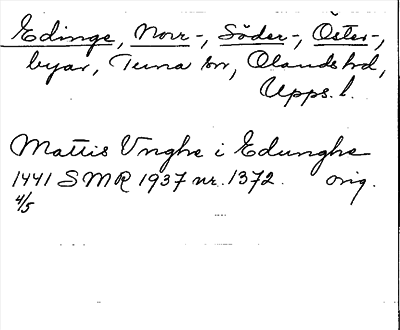 Edinge, Norr-, Söder-, Öster-,
byar, Tuna sn, Olands hd,
Upps. l.
Mattis Vnghe i Edunghe
1441 SMR 1937 nr. 1372. orig.
4/5